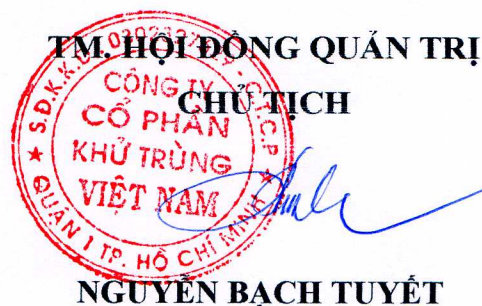 TM. HỘI ĐỒNG QUẢN TRỊ
CHỦ TỊCH
CÔNG TY
CỔ PHẦN
KHỬ TRÙNG
VIỆT NAM
QUẬN 1 TP. HỒ CHÍ MINH
NGUYỄN BẠCH TUYẾT